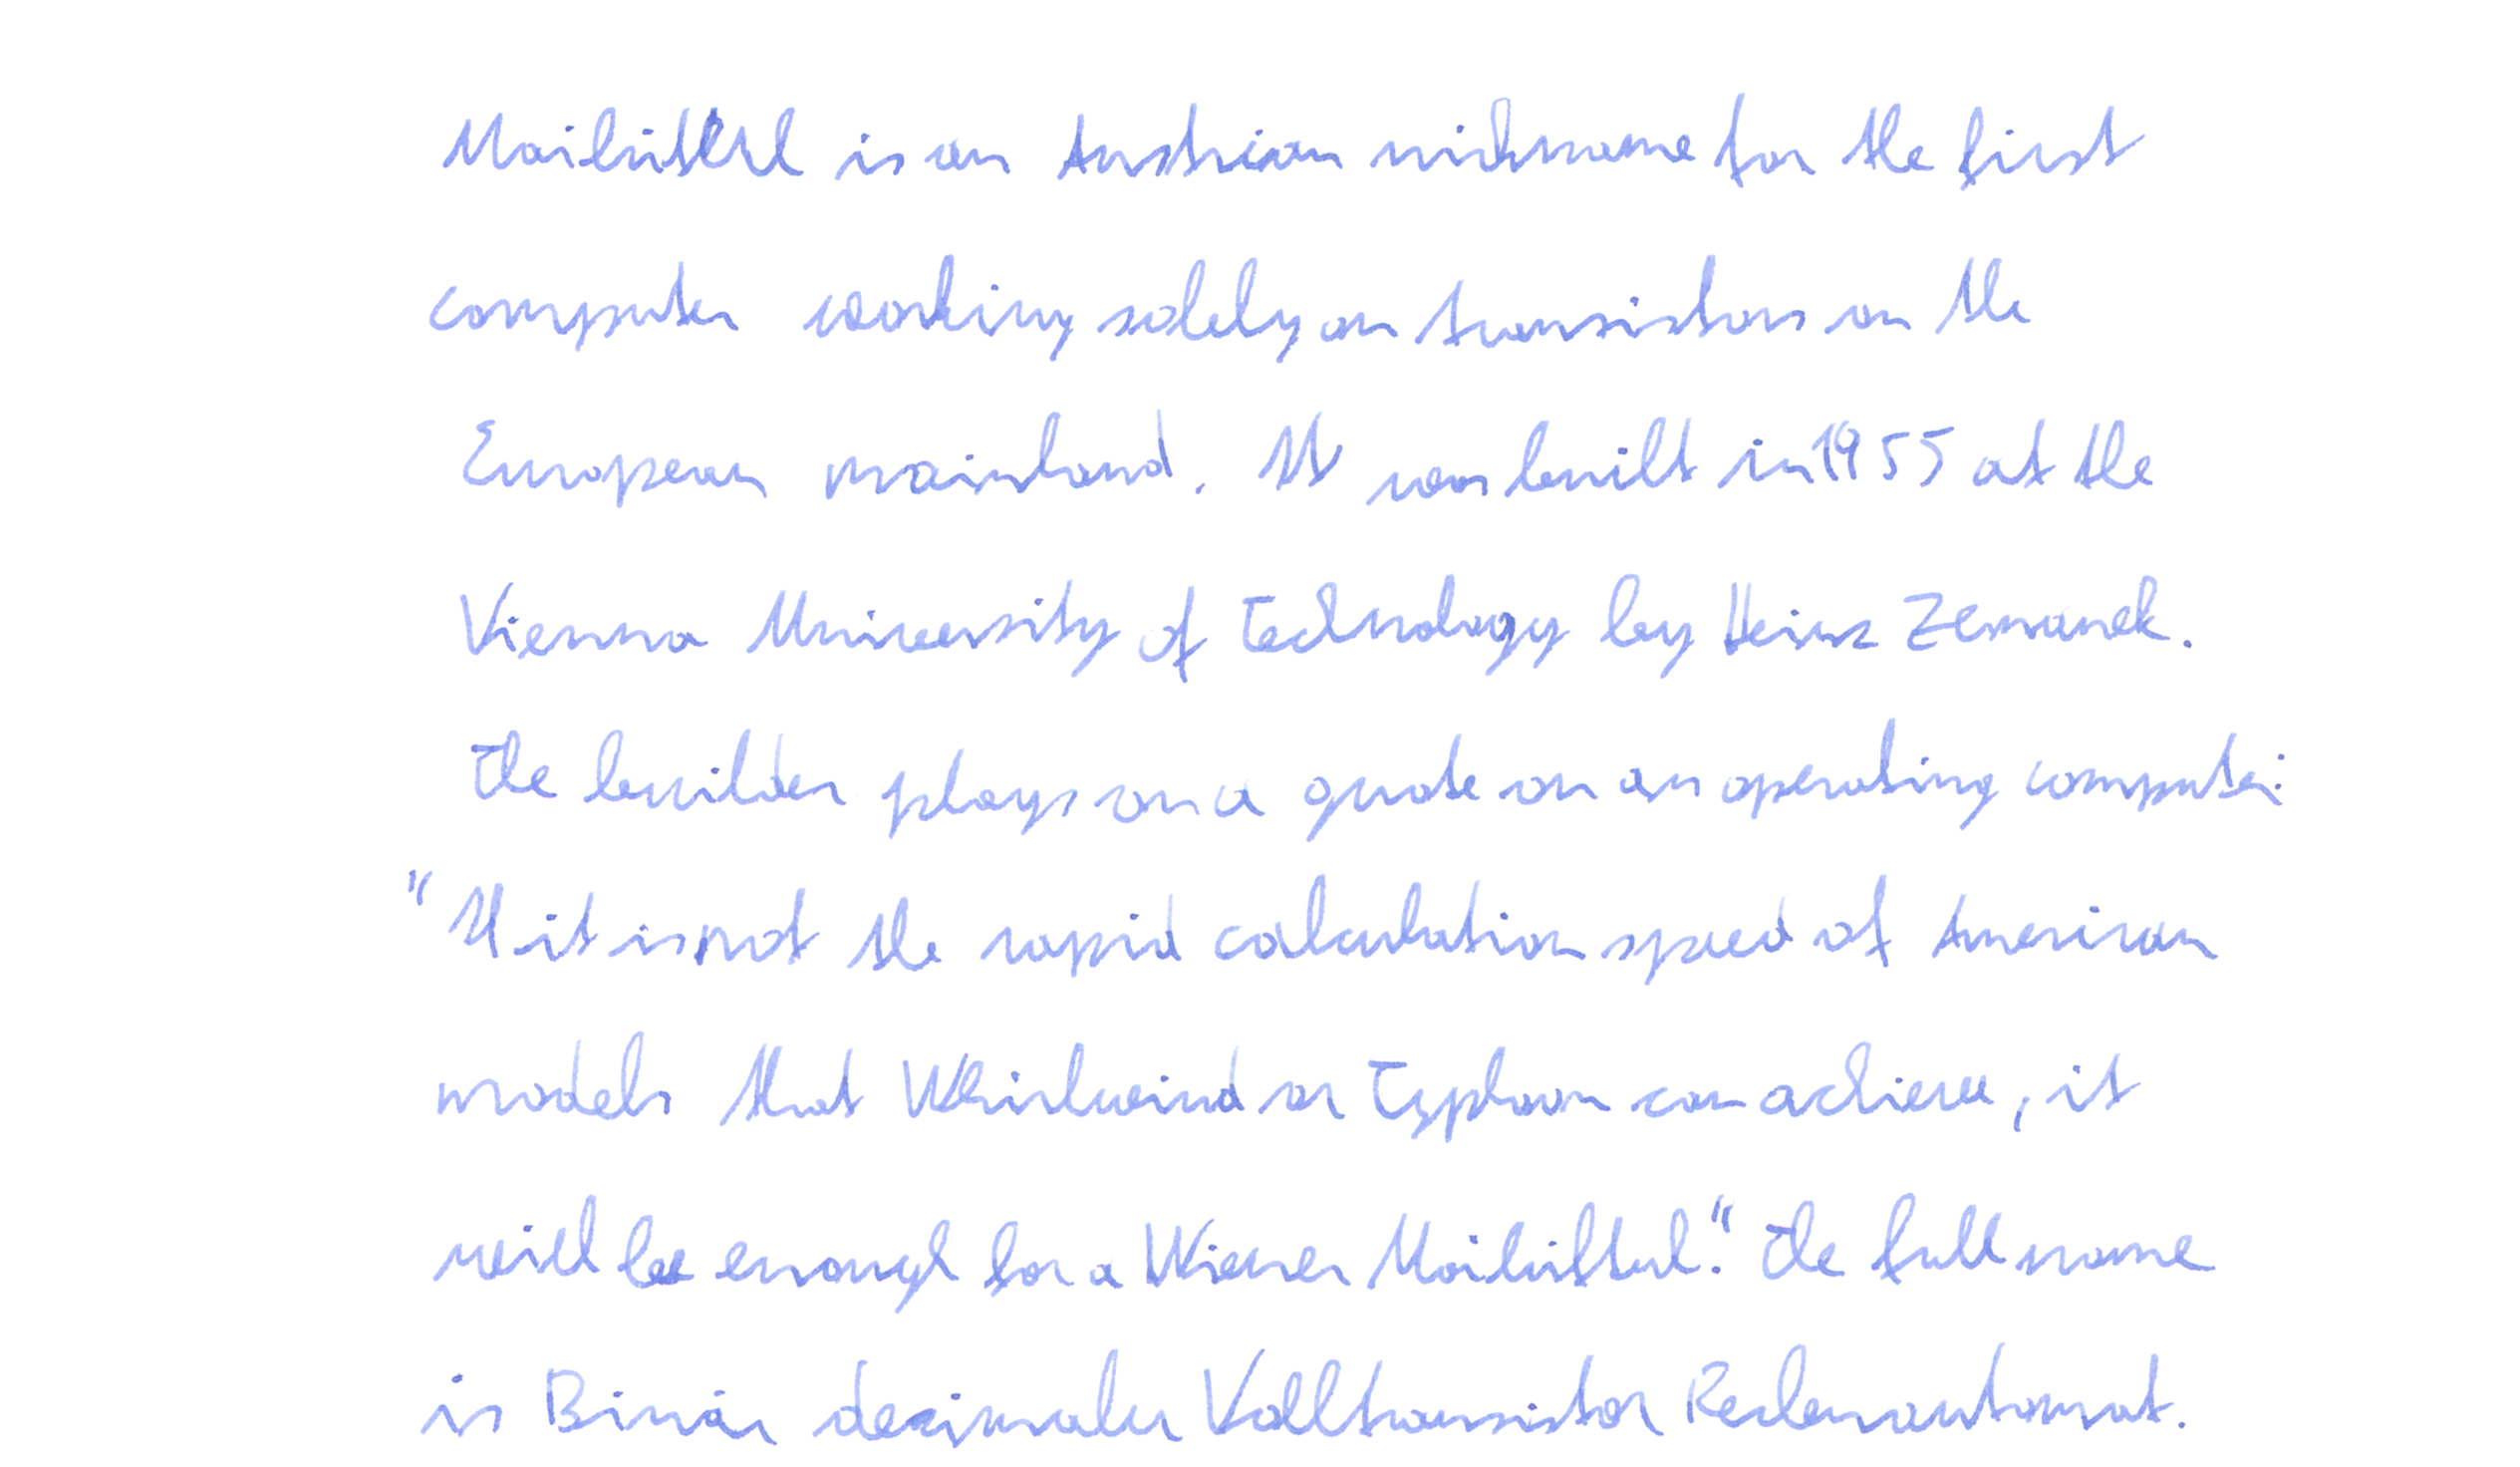 Mailüfterl is an Austrian nickname for the first
computer working solely on transistors on the
European mainland. It was built in 1955 at the
Vienna University of Technology by Heinz Zemanek.
The builder plays on a quote on an operating computer:
"If it is not the rapid calculation speed of American
models that Whirlwind or Typhoon can achieve, it
will be enough for a Wiener Mailüfterl." The full name
is Binär dezimaler Volltransistor Rechenautomat.